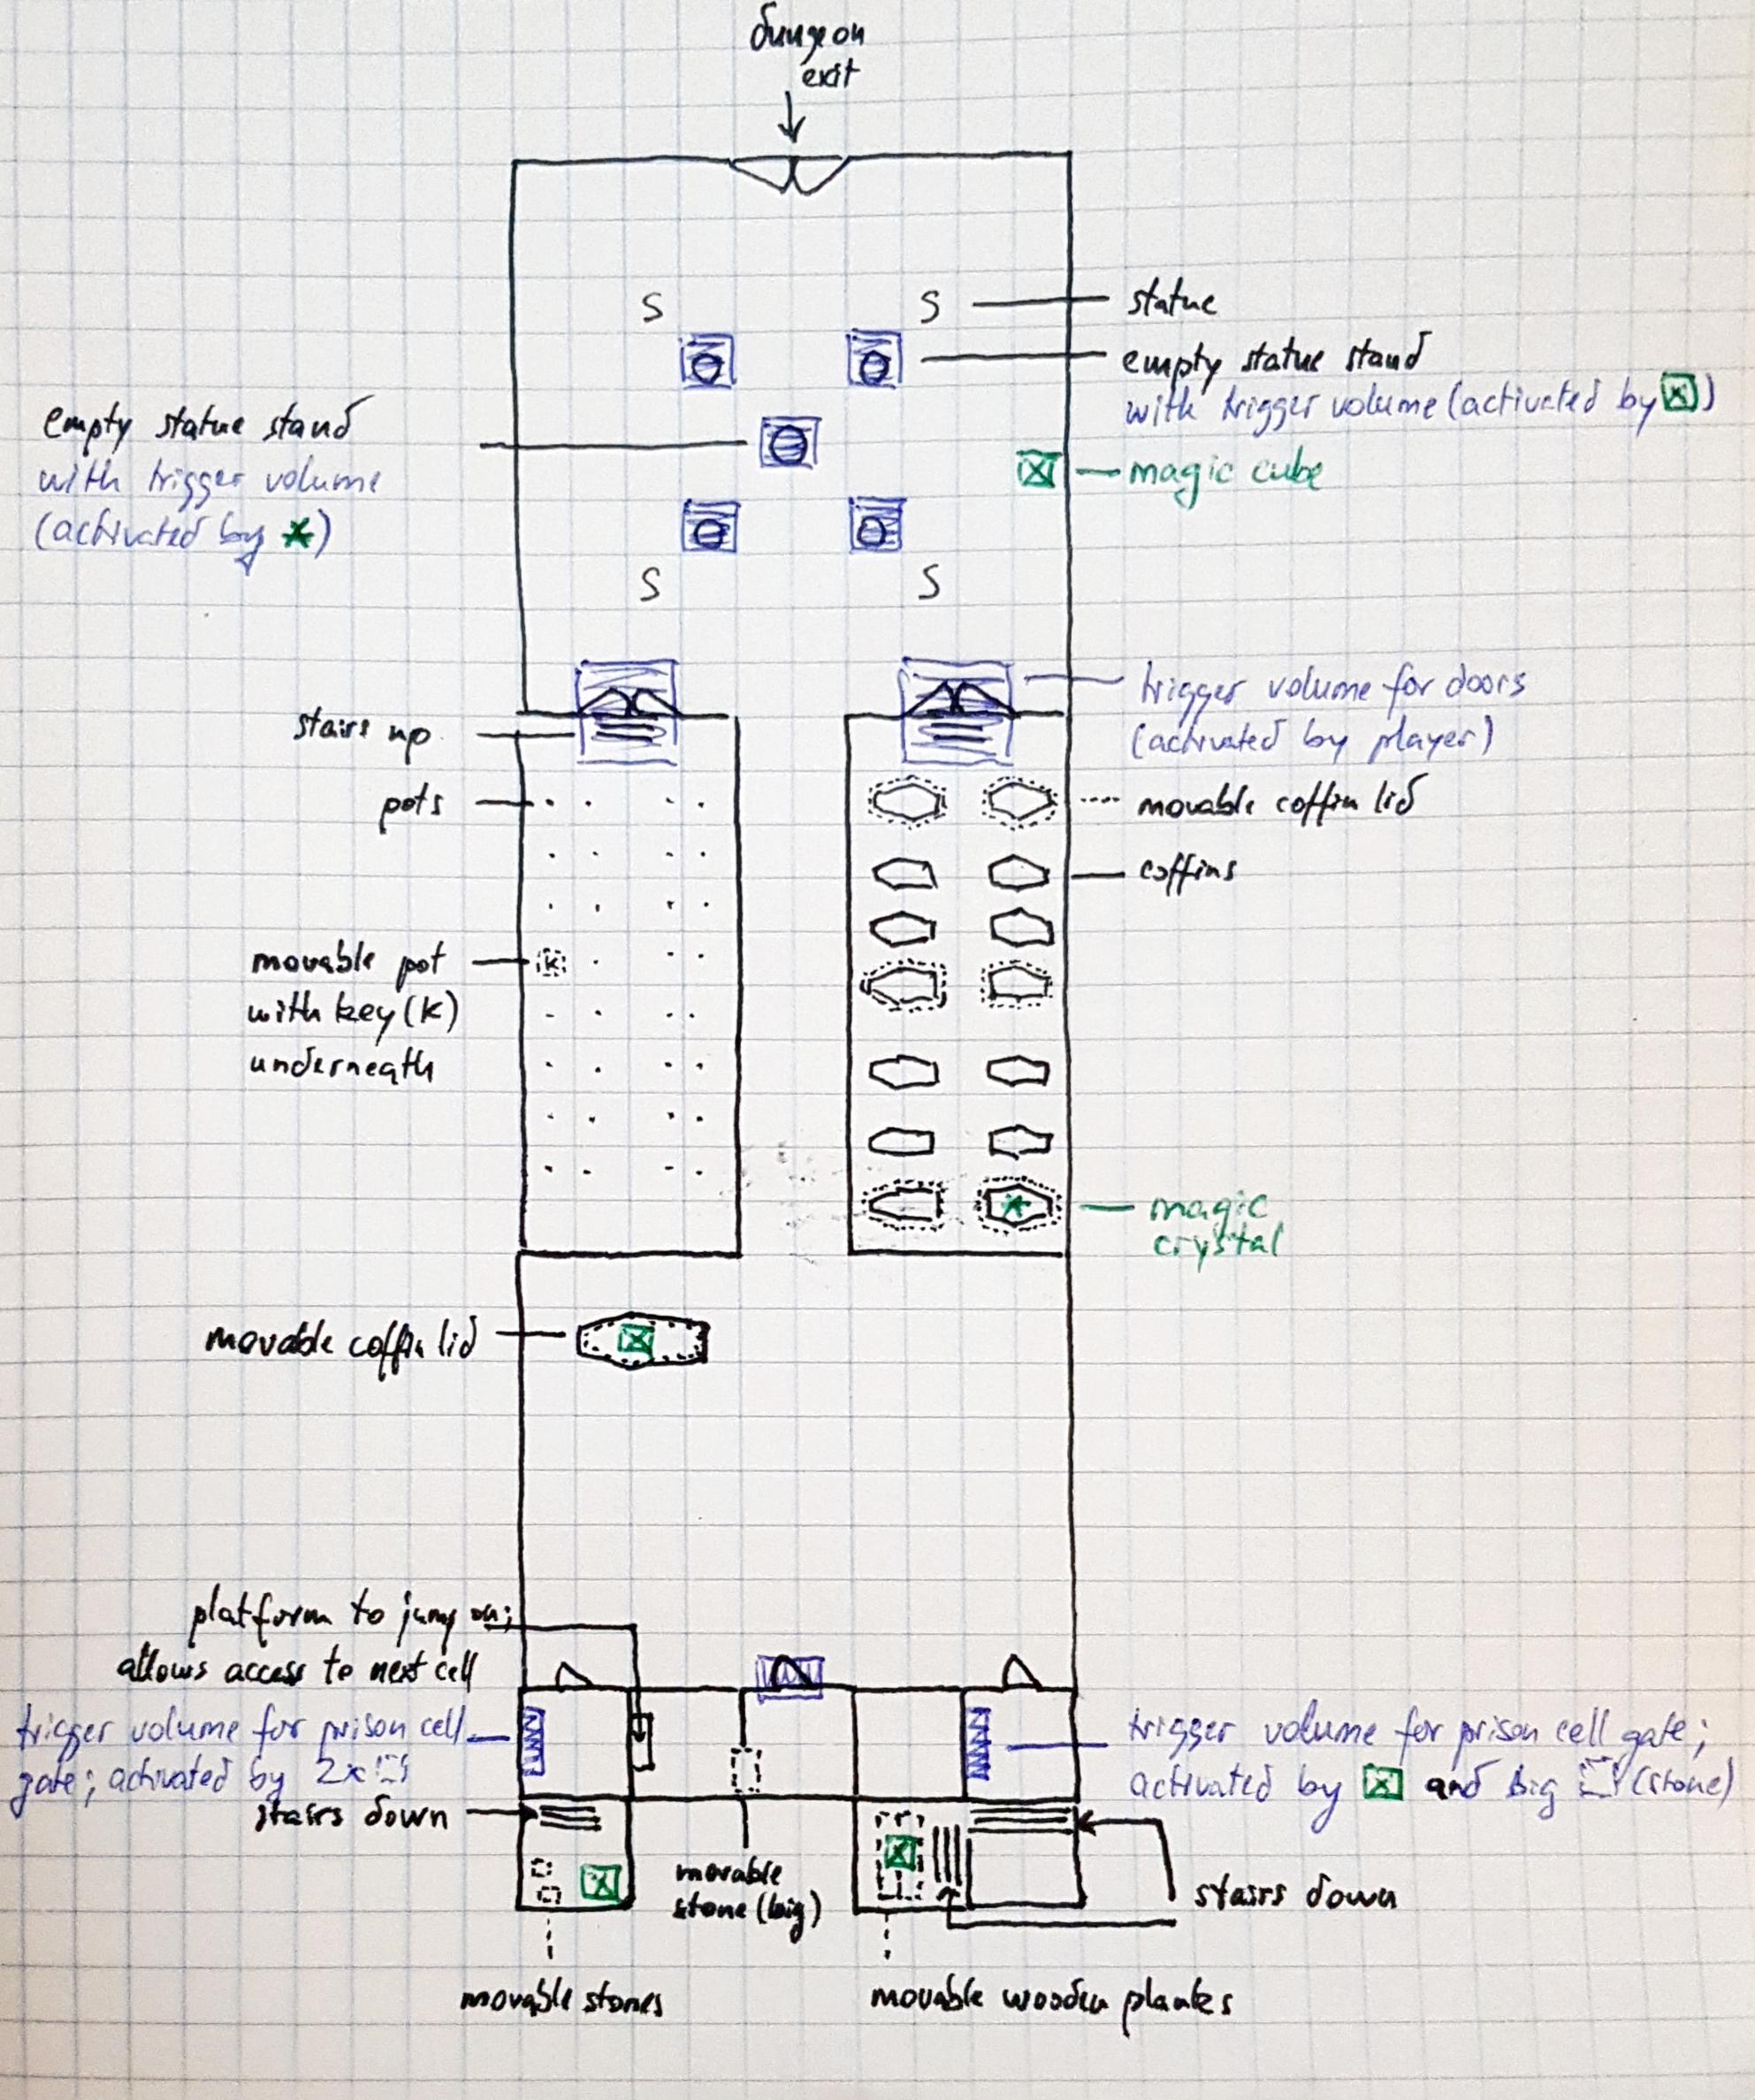 dungeon
exit
S
S
statue
empty statue stand
with trigger volume (activated by )
empty statue stand
with trigger volume
(activated by *)
magic cube
S
S
trigger volume for doors
(activated by player)
stairs up
pots
movable coffin lid
coffins
movable pot
with key (K)
underneath
K
magic
crystal
movable coffin lid
platform to jump on;
allows access to next cell
trigger volume for prison cell
gate; activated by 2x
stairs down
trigger volume for prison cell gate;
activated by and big (stone)
movable
stone (big)
stairs down
movable stones
movable wooden planks